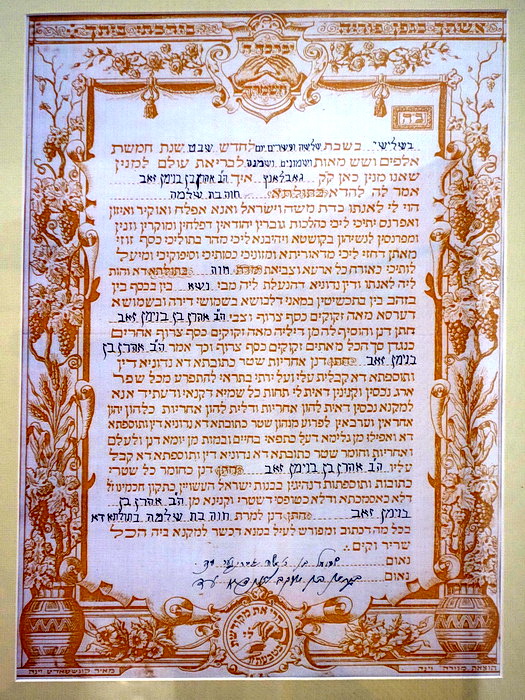 אשתך כגפן פוריה בירכתי ביתך
יברכך ה'
וישמרך
ב״ה
בשלישי בשבת שלשה ועשרים יום לחדש שבט שנת חמשת
אלפים ושש מאות ושמונים ושמנה לבריאת עולם למנין
שאנו מנין כאן קק גאבלאנץ איך הב אהרן בן בנימן זאב
אמר לה להדא בתולתא חוה בת שלמה
הוי לי לאנתו כדת משה וישראל ואנא אפלח ואוקיר ואיזון
ואפרנס יתיכי ליכי כהלכות גוברין יהודאין דפלחין ומוקרין וזנין
ומפרנסין לנשיהון בקושטא ויהיבנא ליכי מהר בתוליכי כסף זוזי
מאתן דחזי ליכי מדאוריתא ומזוניכי כסותיכי וסיפוקיכי ומיעל
לותיכי כאורח כל ארעא וצביאת מרת חוה בתולתא דא והות
ליה לאנתו ודין נדוניא דהנעלת ליה מבי נשא בין בכסף בין
בזהב בין בתכשיטין במאני דלבושא בשמושי דירה ובשמושא
דערסא מאה זקוקים כסף צרוף וצבי הב אהרן בן בנימן זאב
חתן דנן והוסיף לה מן דיליה מאה זקוקים כסף צרוף אחרים
כנגדן סך הכל מאתים זקוקים כסף צרוף וכך אמר הב אהרן בן
בנימן זאב חתן דנן אחריות שטר כתובתא דא נדוניא דין
ותוספתא דא קבלית עלי ועל ירתי בתראי להתפרע מכל שפר
ארג נכסין וקנינין דאית לי תחות כל שמיא דקנאי ודעתיד אנא
למקנא נכסין דאית להון אחריות ודלית להון אחריות כלהון יהון
אחראין וערבאין לפרוע מנהון שטר כתובתא דא נדוניא דין ותוספתא
דא ואפילו מן גלימא דעל כתפאי בחיים ובמות מן יומא דנן ולעלם
ואחריות וחומר שטר כתובתא דא נדוניא דין ותוספתא דא קבל
עליו הב אהרן בן בנימן זאב חתן דנן כחומר כל שטרי
כתובות ותוספתות דנהיגין בבנות ישראל העשויין כתקון חכמינו ז״ל
דלא כאסמכתא ודלא כטופסי דשטרי וקנינא מן הב אהרן בן
בנימן זאב חתן דנן למרת חוה בת שלמה בתולתא דא
בכל מה דכתוב ומפורש לעיל במנא דכשר למקנא ביה הכל
שריר וקים
נאום
נאום עד
הרי את מקודשת
לי
בטבעת זו